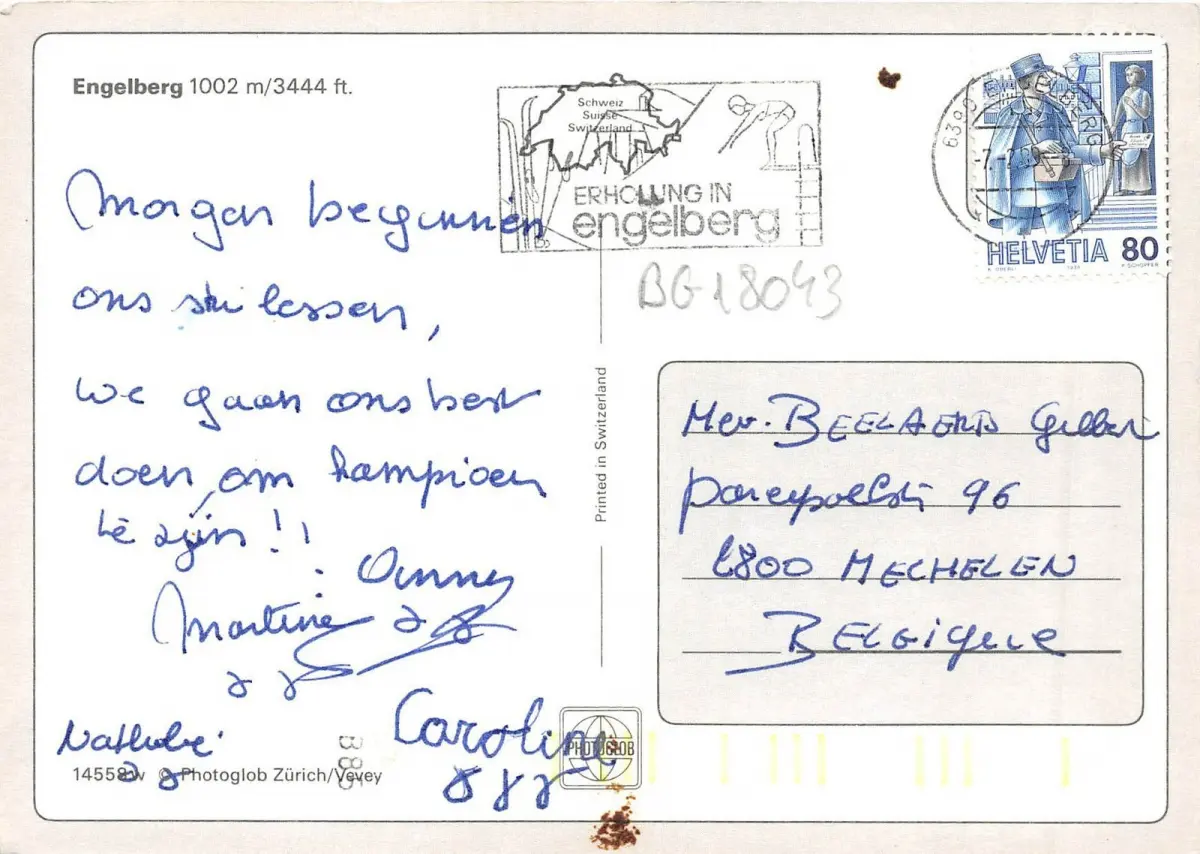 Engelberg 1002 m/3444 ft.
Schweiz
Suisse
Switzerland
ERHOLUNG IN
engelberg
6390 ENGELBERG
HELVETIA 80
BG 18043
Morgen beginnen
ons ski lessen,
we gaan ons best
doen om kampioen
te zijn!!
Anny
Martine
Caroline
Nathalie
Printed in Switzerland
Mev. BEELAERTS
96
2800 MECHELEN
BELGIQUE
PHOTOGLOB
B85
14558w © Photoglob Zürich/Vevey